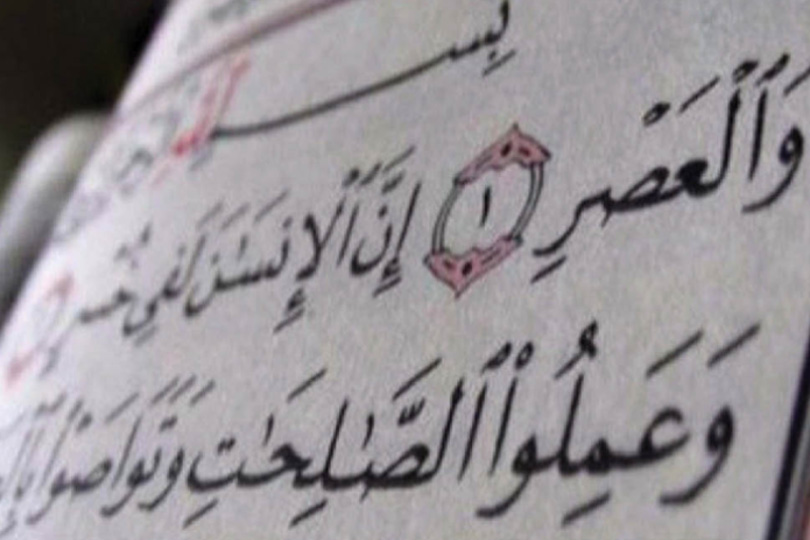 بِسْـ
وَٱلْعَصْرِ ١ إِنَّ ٱلْإِنسَـٰنَ لَفِي خُسْرٍ
وَعَمِلُوا۟ ٱلصَّـٰلِحَـٰتِ وَتَوَاصَوْا۟